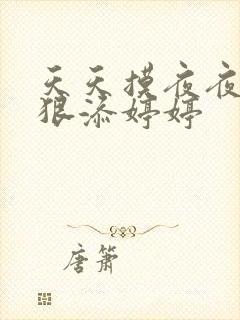 天天摸夜夜
狠添婷婷
唐箫